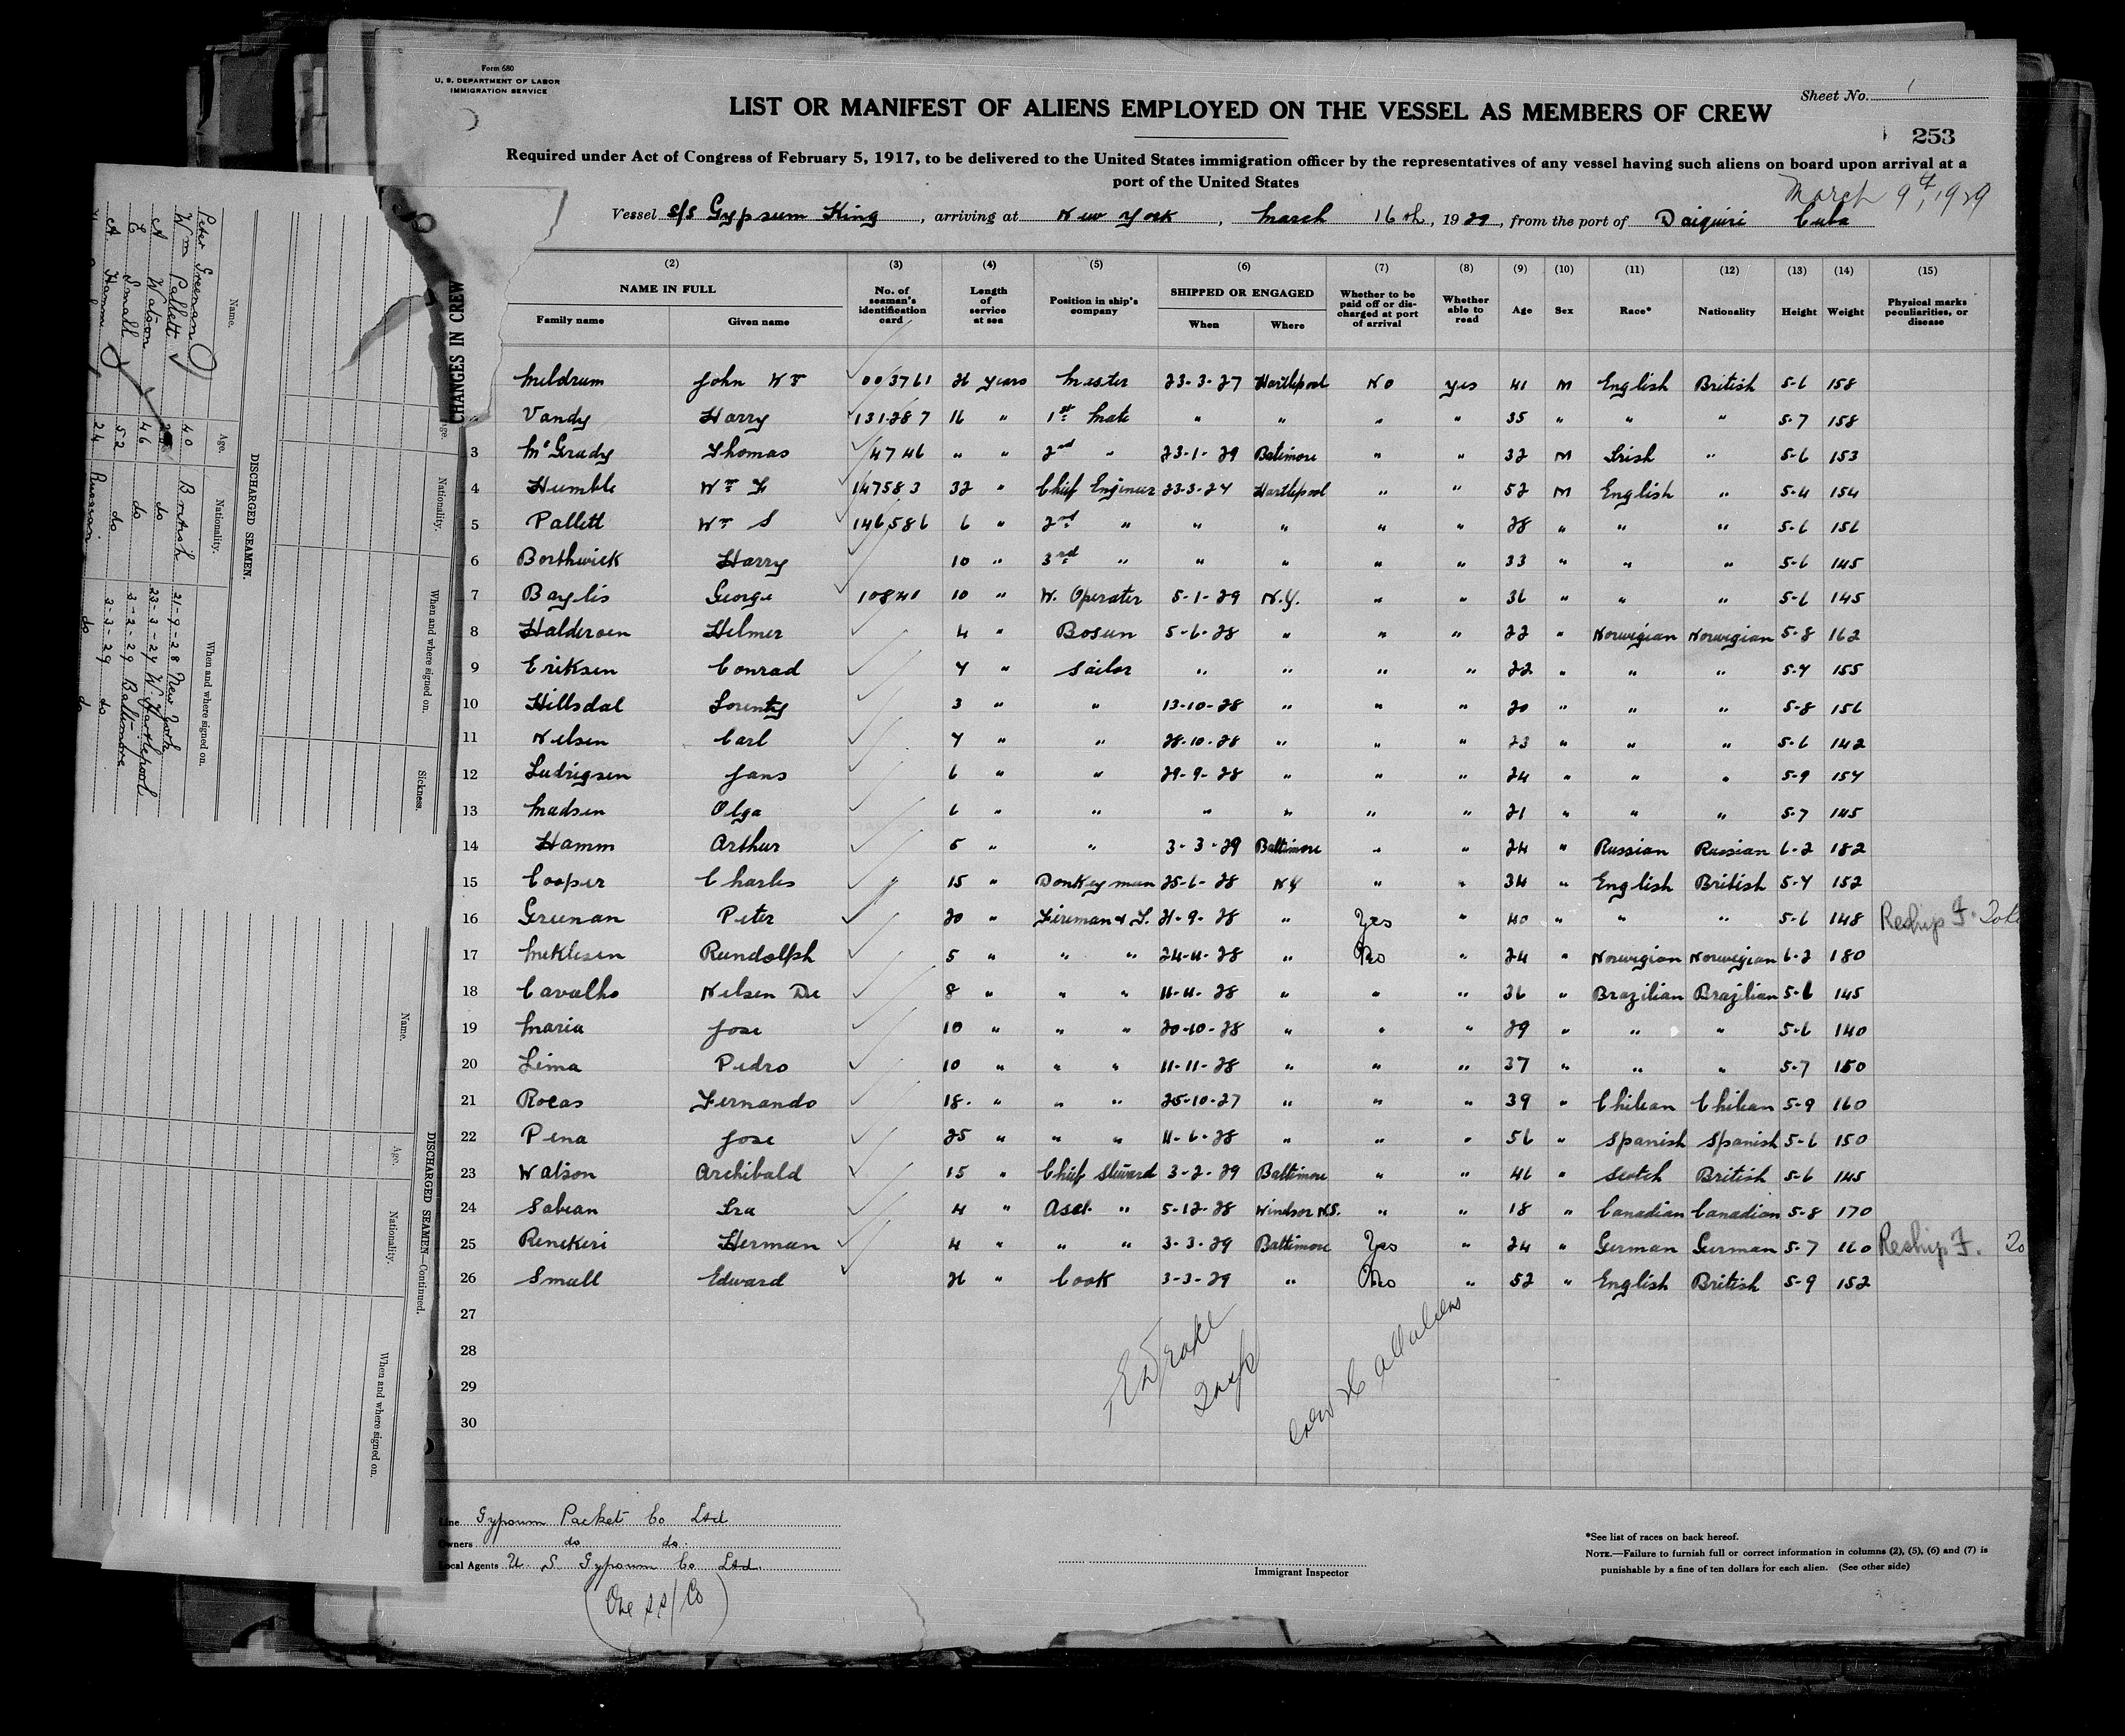 Form 680
U. S. DEPARTMENT OF LABOR
IMMIGRATION SERVICE
Sheet No. 1
LIST OR MANIFEST OF ALIENS EMPLOYED ON THE VESSEL AS MEMBERS OF CREW
253
Required under Act of Congress of February 5, 1917, to be delivered to the United States immigration officer by the representatives of any vessel having such aliens on board upon arrival at a
port of the United States
March 9th, 1929
Vessel s/s Gypsum King, arriving at New York, March 16th, 1929, from the port of Daiquiri Cuba
CHANGES IN CREW
(2) (3) (4) (5) (6) (7) (8) (9) (10) (11) (12) (13) (14) (15)
NAME IN FULL
Family name Given name
No. of seaman's identification card
Length of service at sea
Position in ship's company
SHIPPED OR ENGAGED
When Where
Whether to be paid off or discharged at port of arrival
Whether able to read
Age Sex Race* Nationality Height Weight
Physical marks peculiarities, or disease
Meldrum John Wm 003761 26 years Master 23-3-27 Hartlepool No yes 41 M English British 5-6 158
Vandy Harry 131287 16 " 1st Mate " " " " 35 " " " 5-7 158
3 McGrady Thomas 4746 " " 2nd " 23-1-29 Baltimore " " 32 M Irish " 5-6 153
4 Humble Wm F 147583 32 " Chief Engineer 23-3-27 Hartlepool " " 52 M English " 5-4 154
5 Pallett Wm S 146586 6 " 2nd " " " " " 28 " " " 5-6 156
6 Borthwick Harry 10 " 3rd " " " " " 33 " " " 5-6 145
7 Baylis George 10841 10 " W. Operator 5-1-29 N.Y. " " 36 " " " 5-6 145
8 Haldersen Helmer 4 " Bosun 5-6-28 " " " 22 " Norwegian Norwegian 5-8 162
9 Eriksen Conrad 7 " Sailor " " " " 22 " " " 5-7 155
10 Hillsdal Lorentz 3 " " 13-10-28 " " " 20 " " " 5-8 156
11 Nelsen Carl 7 " " 28-10-28 " " " 23 " " " 5-6 142
12 Ludvigsen Jans 6 " " 29-9-28 " " " 24 " " " 5-9 157
13 Madsen Olga 6 " " " " " " 21 " " " 5-7 145
14 Hamm Arthur 5 " " 3-3-29 Baltimore " " 24 " Russian Russian 6-2 182
15 Cooper Charles 15 " Donkeyman 25-6-28 NY " " 34 " English British 5-7 152
16 Greenan Peter 20 " Fireman & T. 21-9-28 " Yes " 40 " " " 5-6 148 Reship F.
17 Meklesen Rundolph 5 " " " 24-11-28 " No " 24 " Norwegian Norwegian 6-2 180
18 Cavalho Nelsen De 8 " " " 11-11-28 " " " 36 " Brazilian Brazilian 5-6 145
19 Maria Jose 10 " " " 20-10-28 " " " 29 " " " 5-6 140
20 Lima Pedro 10 " " " 11-11-28 " " " 37 " " " 5-7 150
21 Rocas Fernando 18 " " " 25-10-27 " " " 39 " Chilean Chilean 5-9 160
22 Pena Jose 25 " " " 11-6-28 " " " 56 " Spanish Spanish 5-6 150
23 Watson Archibald 15 " Chief Steward 3-2-29 Baltimore " " 46 " Scotch British 5-6 145
24 Sabean Ira 4 " Asst. " 5-12-28 Windsor N.S. " " 18 " Canadian Canadian 5-8 170
25 Renekeri Herman 4 " " " 3-3-29 Baltimore Yes " 24 " German German 5-7 160 Reship F.
26 Small Edward 26 " Cook 3-3-29 " No " 52 " English British 5-9 152
27
28
29
30
E Drake
Insp
Crew 26 all aliens
Line Gypsum Packet Co Ltd
Owners do do.
Local Agents U. S. Gypsum Co Ltd.
Immigrant Inspector
*See list of races on back hereof.
NOTE.—Failure to furnish full or correct information in columns (2), (5), (6) and (7) is
punishable by a fine of ten dollars for each alien. (See other side)
Age. Nationality. When and where signed on. Sickness.
DISCHARGED SEAMEN.
Name. Age. Nationality. When and where signed on.
Peter Greenan 40 British 21-9-28 New York
Wm Pallett do 23-3-27 W. Hartlepool
A Watson 46 do 3-2-29 Baltimore
E Small 52 do 3-3-29 do
A Hamm 24 Russian do do
DISCHARGED SEAMEN—Continued.
Name. Age. Nationality. When and where signed on.